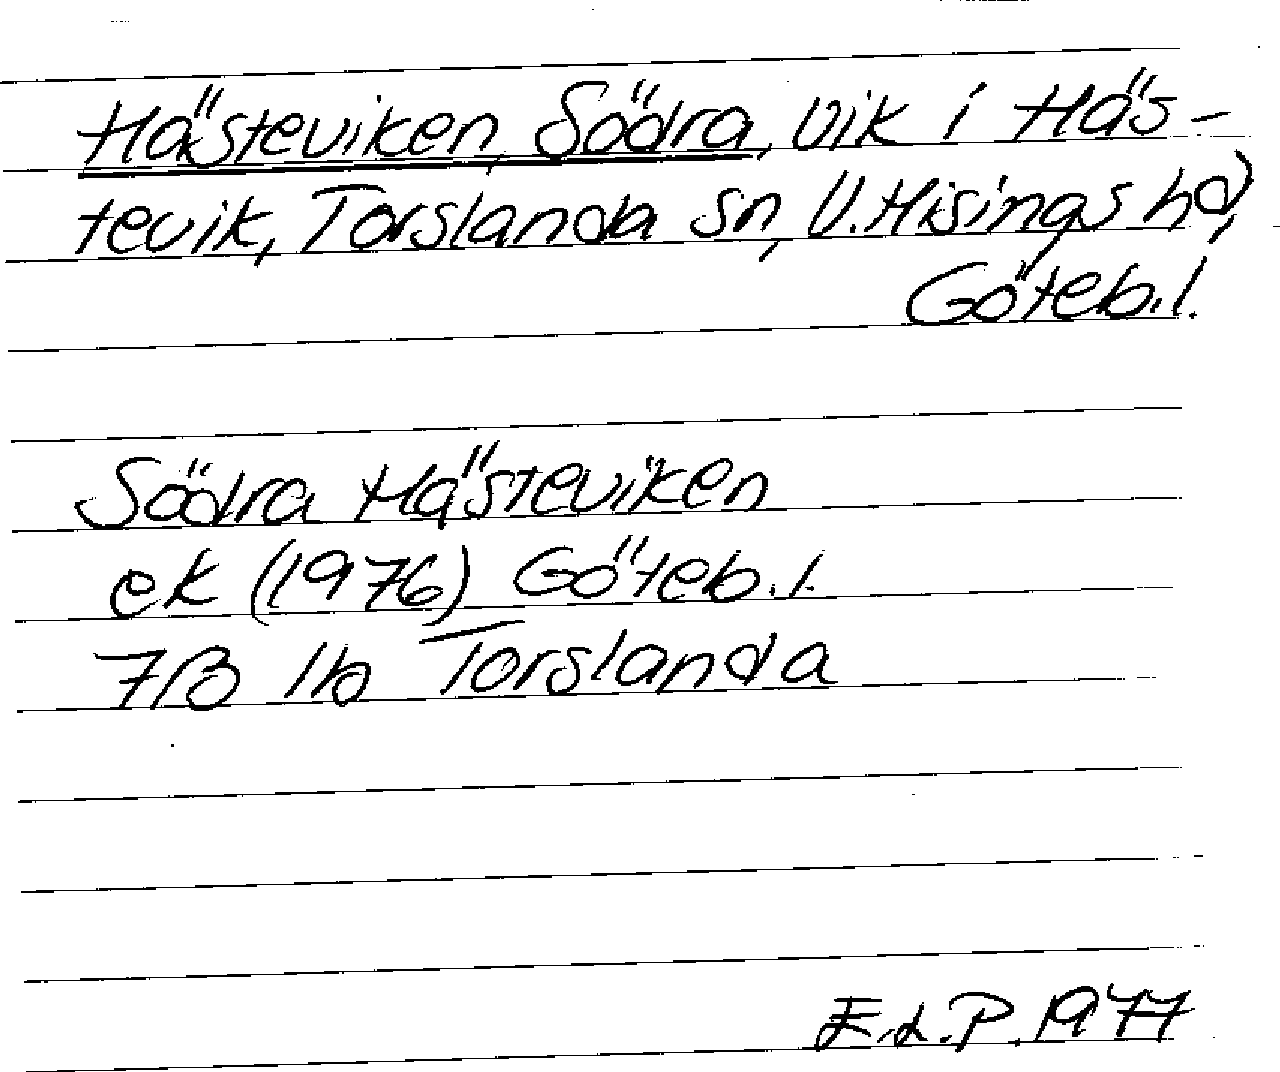 Hästeviken, Södra, vik i Häs-
tevik, Torslanda sn, V. Hisings hd,
Göteb. l.
Södra Hästeviken
ek (1976) Göteb. l.
7B 1b Torslanda
E.L.P. 1977